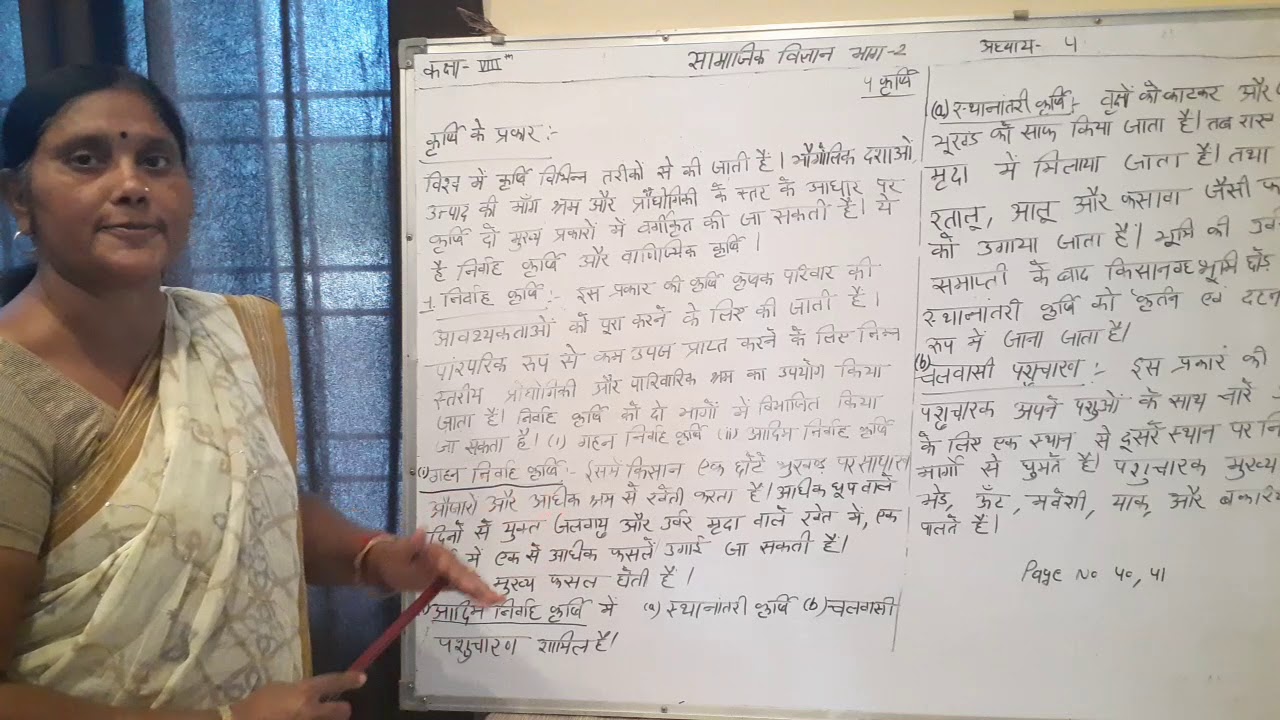 कक्षा- VIII th
सामाजिक विज्ञान भाग-2
अध्याय- 4
4 कृर्षि
कृर्षि के प्रकार :-
विश्व में कृर्षि विभिन्न तरीकों से की जाती है। भौगोलिक दशाओं
उत्पाद की माँग श्रम और प्रौद्योगिकी के स्तर के आधार पर
कृर्षि दो मुख्य प्रकारों में वर्गीकृत की जा सकती है। ये
है निर्वाह कृर्षि और वाणिज्यिक कृर्षि।
1. निर्वाह कृर्षि :- इस प्रकार की कृर्षि कृषक परिवार की
आवश्यकताओं को पूरा करने के लिए की जाती है।
पारंपरिक रूप से कम उपज प्राप्त करने के लिए निम्न
स्तरीय प्रौद्योगिकी और पारिवारिक श्रम का उपयोग किया
जाता है। निर्वाह कृर्षि को दो भागों में विभाजित किया
जा सकता है। (i) गहन निर्वाह कृर्षि (ii) आदिम निर्वाह कृर्षि
(i) गहन निर्वाह कृर्षि :- इसमें किसान एक छोटे भूखण्ड पर साधारण
औजारों और अधिक श्रम से खेती करता है। अधिक धूप वाले
दिनों से युक्त जलवायु और उर्वर मृदा वाले खेत में, एक
में एक से अधिक फसलें उगाई जा सकती है।
मुख्य फसल होती है।
आदिम निर्वाह कृर्षि में (a) स्थानांतरी कृर्षि (b) चलवासी
पशुचारण शामिल है।
(a) स्थानांतरी कृर्षि :- वृक्षों को काटकर और
भूखण्ड को साफ किया जाता है। तब राख
मृदा में मिलाया जाता है। तथा
रतालू, आलू और कसावा जैसी
को उगाया जाता है। भूमि की
समाप्ती के बाद किसान वह भूमि छोड़
स्थानांतरी कृर्षि को कर्तन एवं दहन
रूप में जाना जाता है।
(b) चलवासी पशुचारण :- इस प्रकार की
पशुचारक अपने पशुओं के साथ चारे
के लिए एक स्थान से दूसरे स्थान पर
मार्गो से घुमते है। पशुचारक मुख्य
भेड़, ऊँट, मवेशी, याक, और
पालते है।
Page No 40, 41